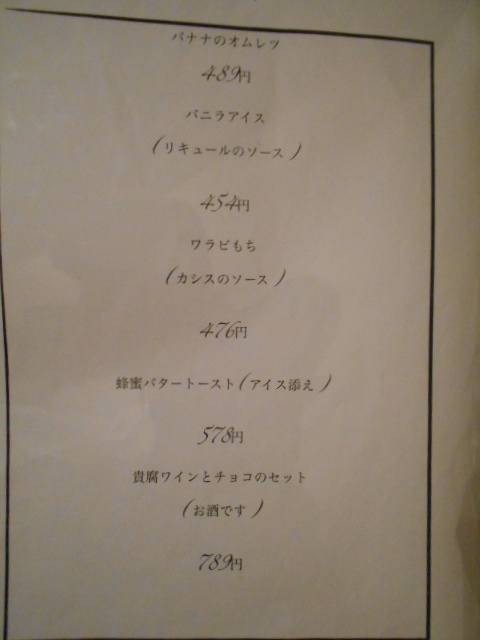 バナナのオムレツ
489円
バニラアイス
(リキュールのソース)
454円
ワラビもち
(カシスのソース)
476円
蜂蜜バタートースト(アイス添え)
578円
貴腐ワインとチョコのセット
(お酒です)
789円